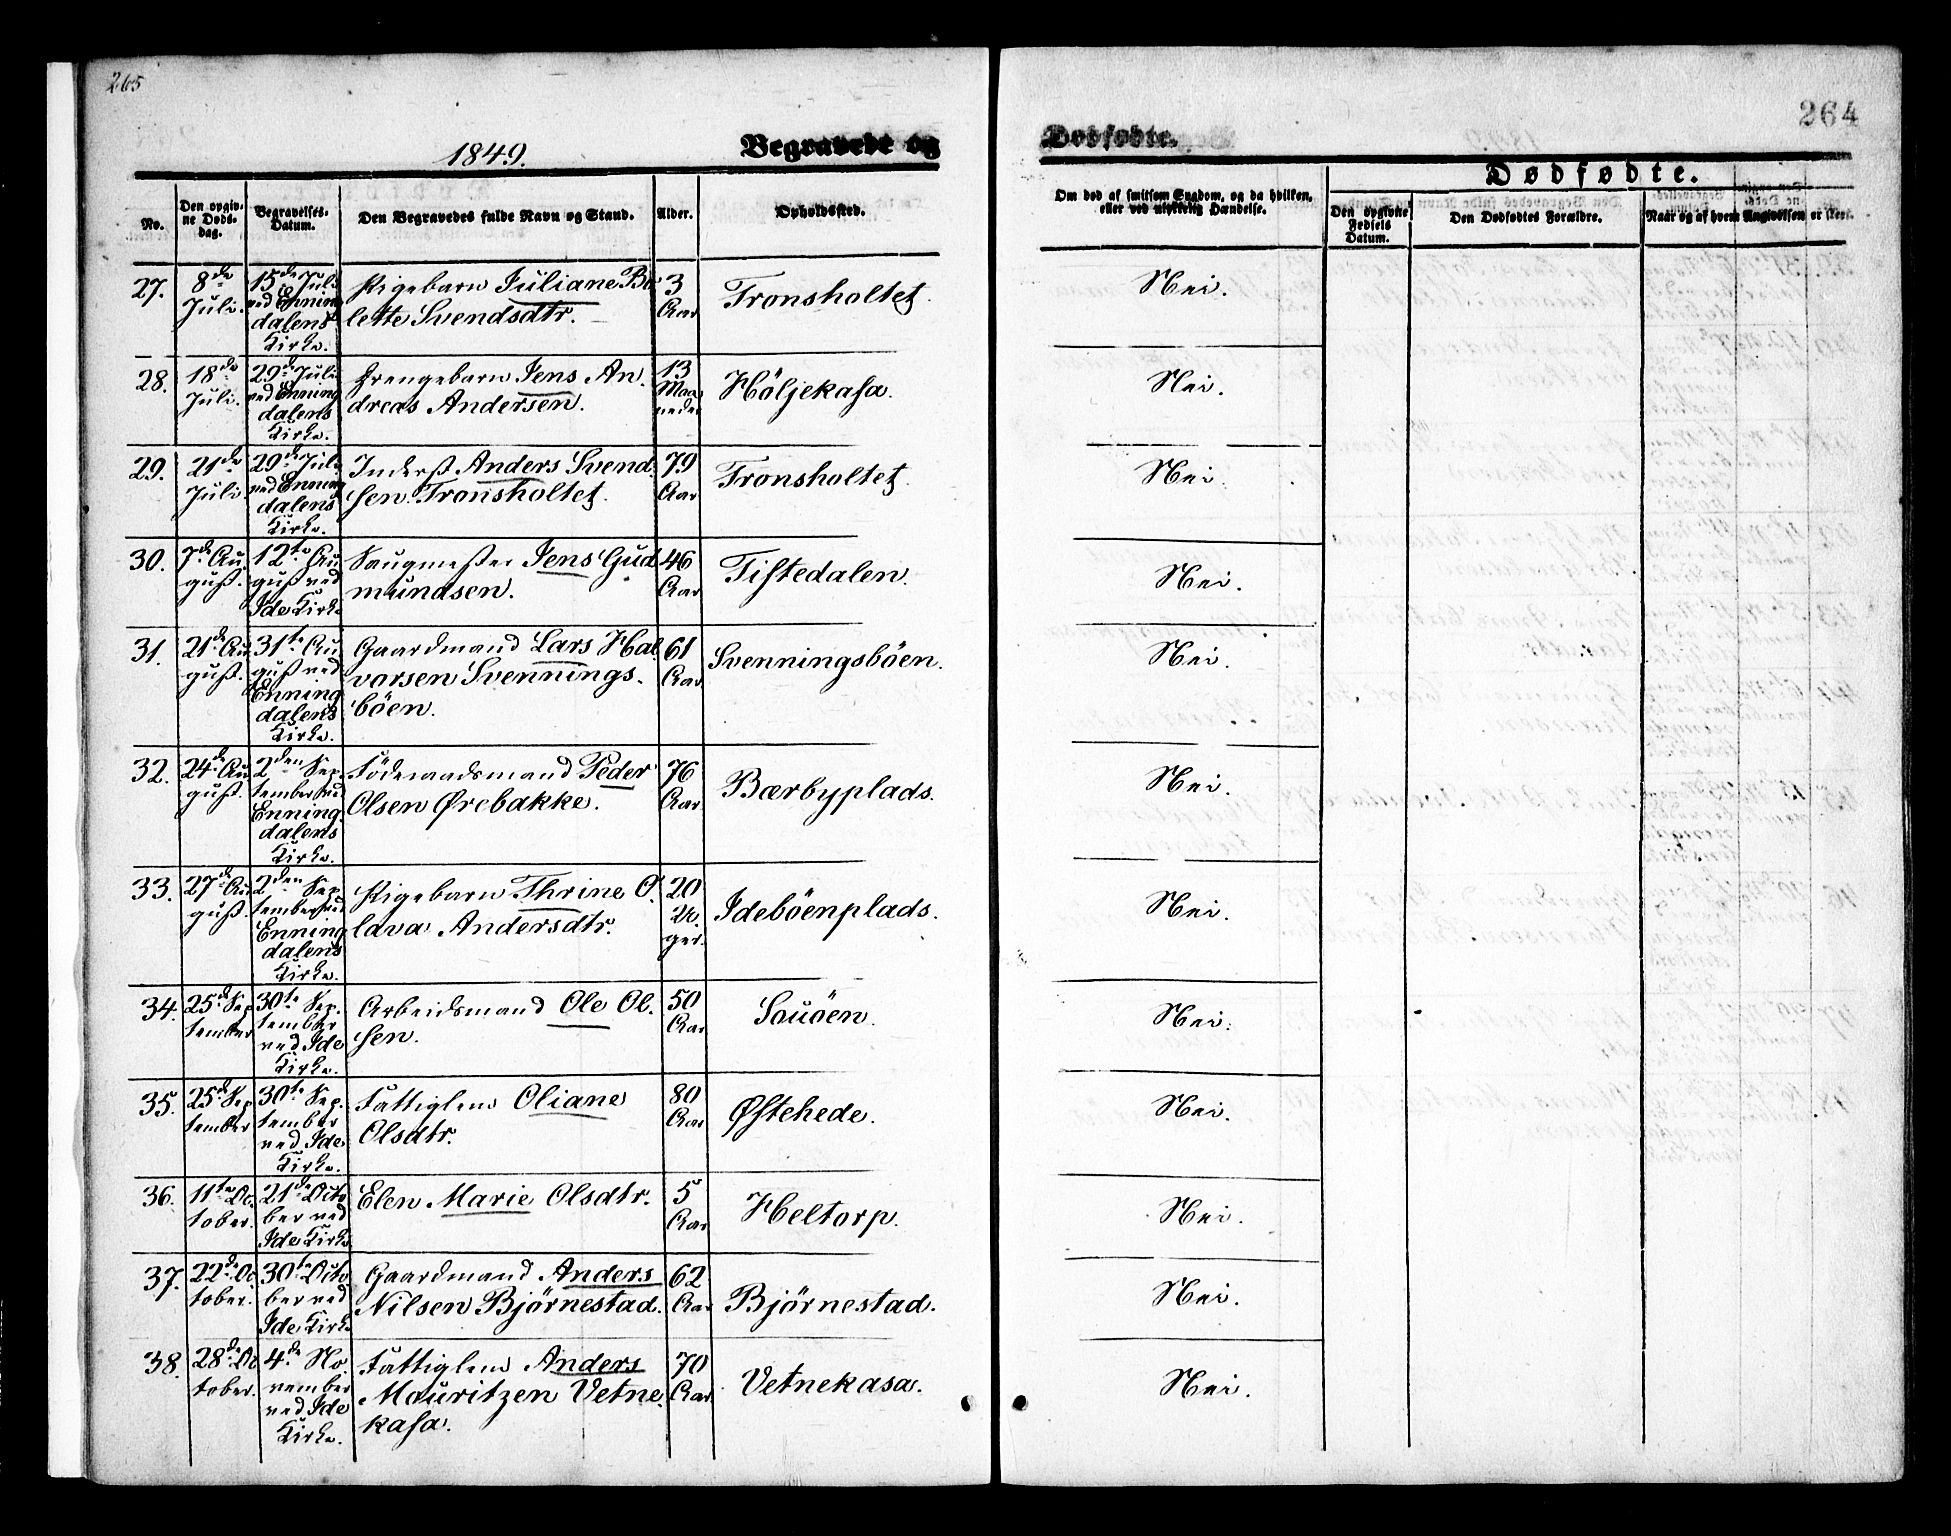 265
264
1849.
Begravede og
Dødfødte.
Dødfødte.
No.
Den opgiv-
ne Døds-
dag.
Begravelses-
Datum.
Den Begravedes fulde Navn og Stand.
Alder.
Opholdssted.
Om død af smitsom Sygdom, og da hvilken,
eller ved ulykkelig Hændelse.
Den opgivne
Fødsels
Datum.
Den Dødfødtes Forældre.
Naar og af hvem Angivelsen er skeet.
27.
8de
Juli.
15de Juli
ved Enning
dalens
Kirke.
Pigebarn Juliane Bo
lette Svendsdtr.
3
Aar
Tronsholtet.
Nei.
28.
18de
Juli.
29de Juli
ved Enning
dalens
Kirke.
Drengebarn Jens An
dreas Andersen.
13
Maa
neder
Höljekasa.
Nei.
29.
21de
Juli
29de Juli
ved Enning
dalens
Kirke.
Inderst Anders Svend
sen Tronsholtet.
79
Aar
Tronsholtet.
Nei.
30.
7de Au
gust.
12te Au
gust ved
Ide Kirke
Saugmester Jens Gud
mundsen.
46
Aar
Tistedalen.
Nei.
31.
21de Au
gust.
31te Au
gust ved
Enning
dalens
Kirke.
Gaardmand Lars Hal
vorsen Svennings-
böen.
61
Aar
Svenningsböen.
Nei.
32.
24de Au
gust.
2den Sep-
tember ved
Enning
dalens
Kirke.
Föderaadsmand Peder
Olsen Ørebakke.
76
Aar
Bærbyplads.
Nei.
33.
27de Au
gust.
2den Sep
tember ved
Enning
dalens
Kirke.
Pigebarn Thrine O
lava Andersdtr.
20
Uger.
Ideböenplads.
Nei.
34.
25de Sep
tember
30te Sep-
tember
ved Ide
Kirke.
Arbeidsmand Ole Ol-
sen.
50
Aar
Souöen.
Nei.
35.
25de Sep
tember
30te Sep-
tember
ved Ide
Kirke.
Fattiglem Oliane
Olsdtr.
80
Aar
Østehede.
Nei.
36.
11te Oc
tober.
21de Octo
ber ved
Ide Kirke
Elen Marie Olsdtr.
5
Aar
Heltorp.
Nei.
37.
22de Oc
tober.
30te Octo
ber ved
Ide Kirke
Gaardmand Anders
Nilsen Björnestad.
62
Aar
Björnestad.
Nei.
38.
28de Oc
tober.
4de No
vember
ved Ide
Kirke.
Fattiglem Anders
Mouritzen Vetne
kasa.
70
Aar
Vetnekasa.
Nei.